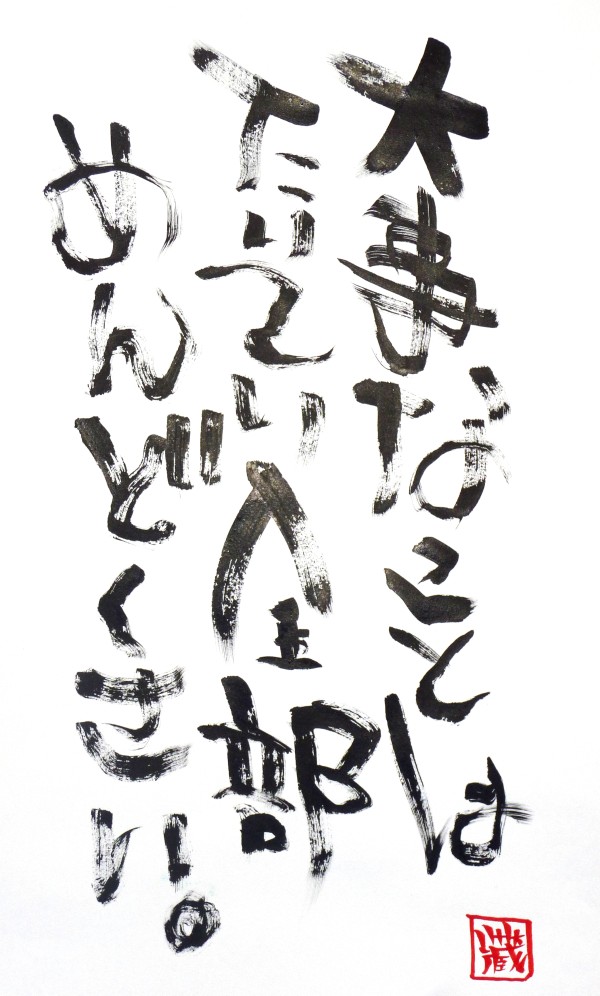 大事なことは
たいてい全部
めんどくさい。
蔵